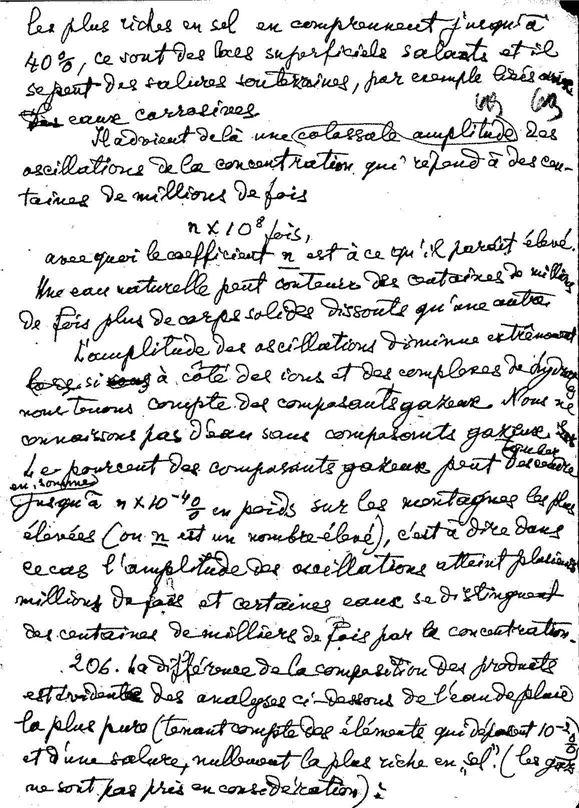 les plus riches en sel en comprennent jusqu'à
40%, ce sont des lacs superficiels salants et il
se peut des salures souterraines, par exemple liées aux
eaux carrosines
Il advient de là une colossale amplitude des
oscillations de la concentration qui répond à des cen-
taines de millions de fois
n × 10⁸ fois,
avec quoi le coefficient n est à ce qu'il paroit élevé.
Une eau naturelle peut contenir des centaines de millions
de fois plus de corps solides dissouts qu'une autre
L'amplitude des oscillations diminue extrêmement
si à côté des ions et des complexes de
nous tenons compte des composants gazeux. Nous ne
connaissons pas d'eau sans composants gazeux
Le pourcent des composants gazeux peut tomber descendre
en somme
jusqu'à n × 10⁻⁴% en poids sur les montagnes les plus
élevées (ou n est un nombre élevé), c'est à dire dans
ce cas l'amplitude des oscillations atteint plusieurs
millions de fois et certaines eaux se distinguent
des centaines de milliers de fois par la concentration.
206. La différence de la composition des produits
est évidente des analyses ci-dessous de l'eau de pluie
la plus pure (tenant compte des éléments qui déposent 10⁻²%)
et d'une salure, nullement la plus riche en „sel" (les gazs
ne sont pas pris en considération):